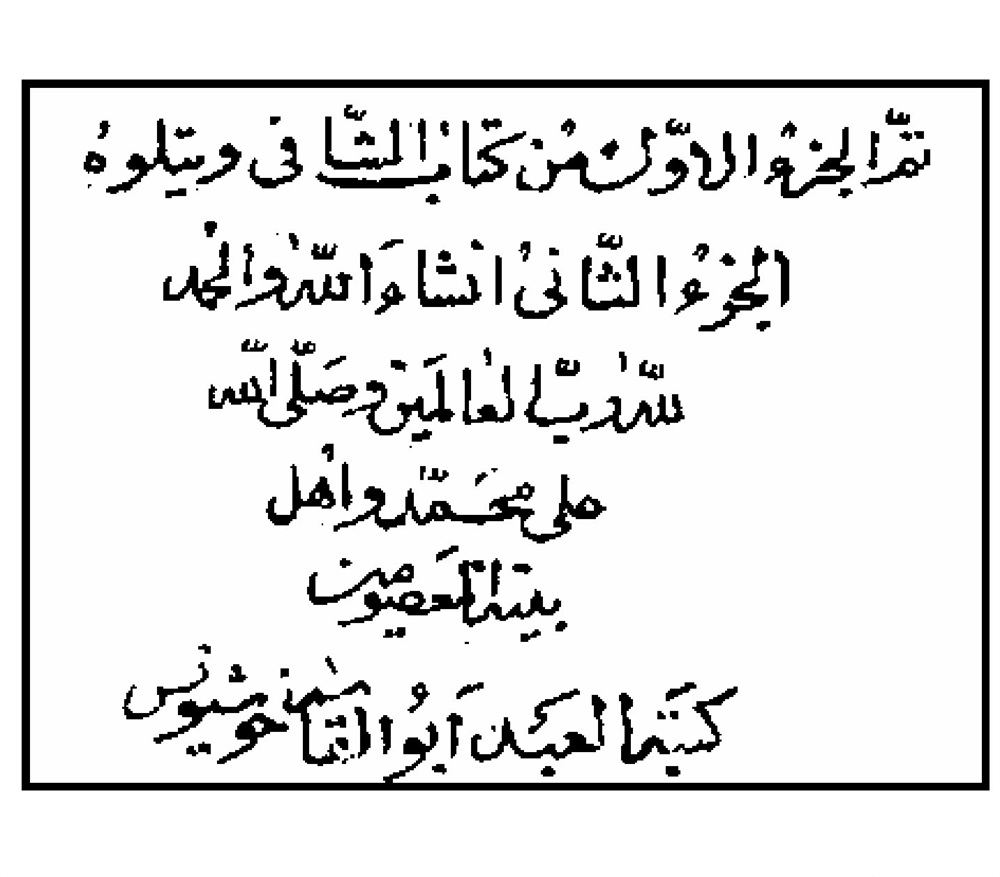 تمَّ الجزءُ الاوَّل من كتاب الشَّافى ويتلوهُ
الجزءُ الثَّانىُ انشاءَ اللّٰه والحمد
للّٰه ربِّ العالمَين وصَلَّى اللّٰه
على محمَّد واهل
بيته المعصومين
كتبَه العبَد اَبوُ القاسم خوشنويس